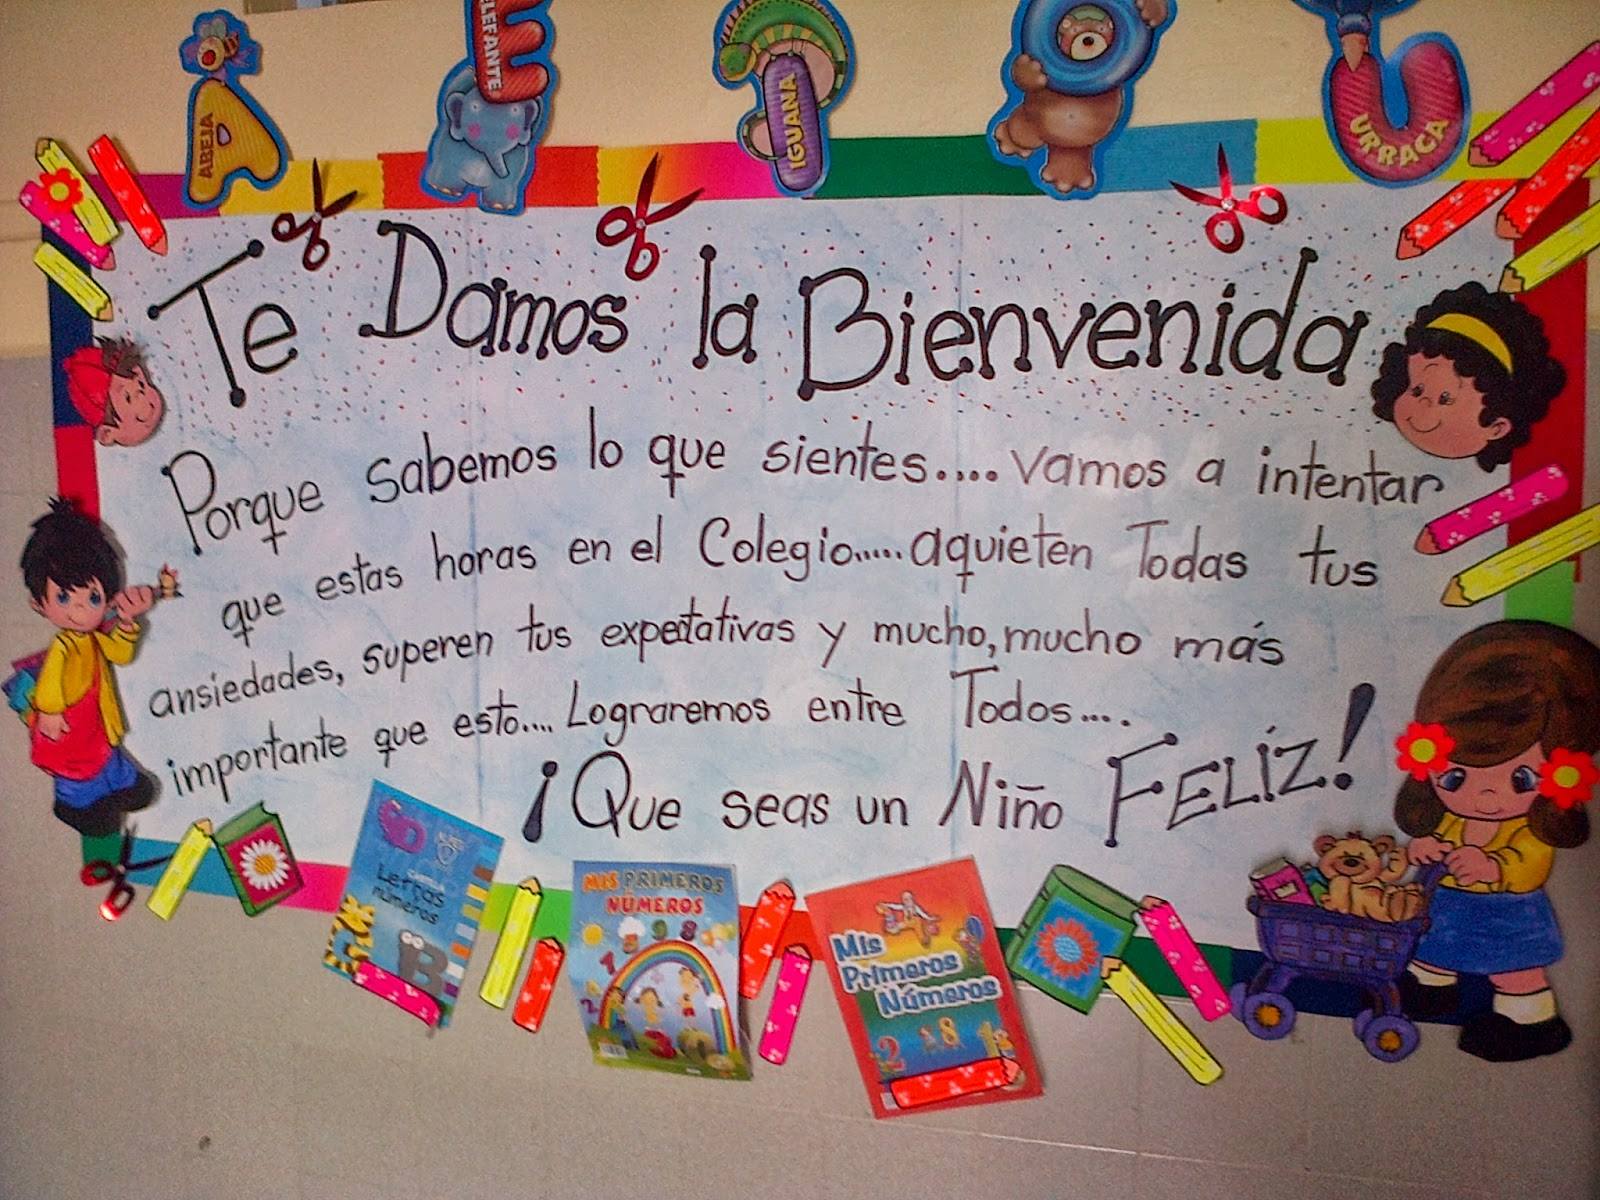 ABEJA
ELEFANTE
IGUANA
URRACA
Te Damos la Bienvenida
Porque sabemos lo que sientes.... vamos a intentar
que estas horas en el Colegio..... aquieten Todas tus
ansiedades, superen tus expectativas y mucho, mucho más
importante que esto.... Lograremos entre Todos....
¡Que seas un Niño FELÍZ!
Letras
números
MIS PRIMEROS
NÚMEROS
Mis
Primeros
Números